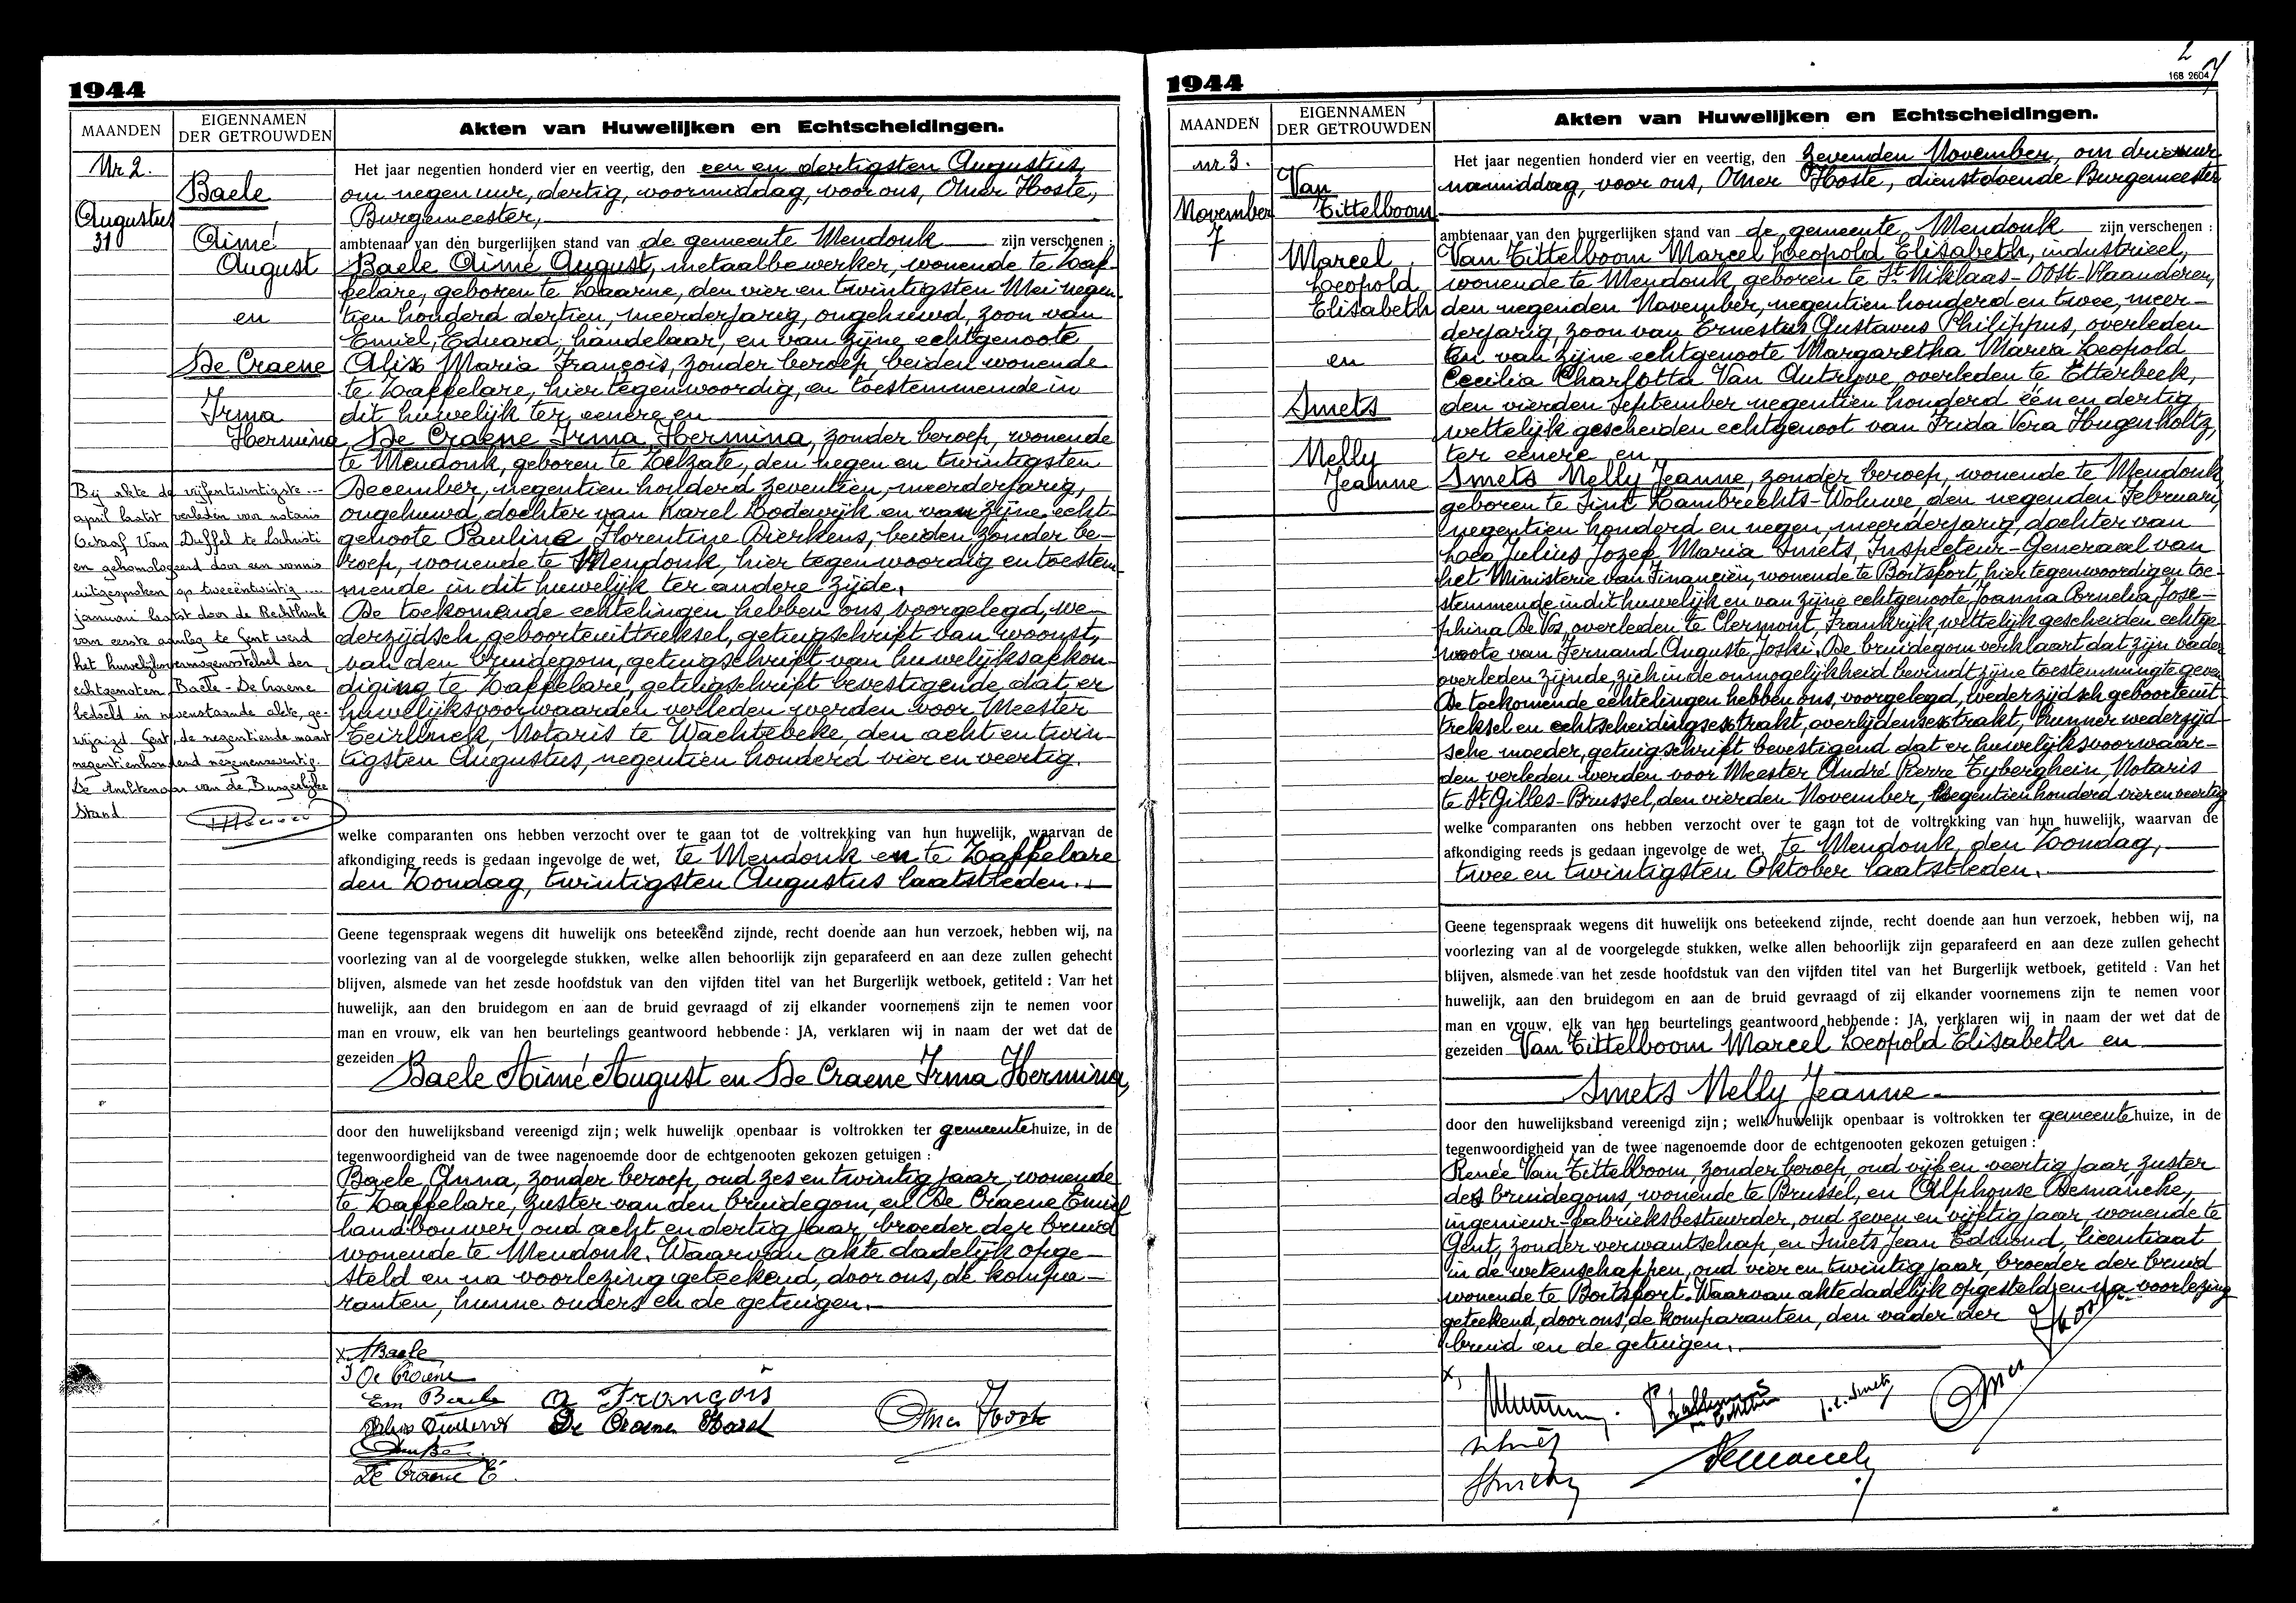 1944
MAANDEN
EIGENNAMEN
DER GETROUWDEN
Akten van Huwelijken en Echtscheidingen.
Nr 2.
Augustus
31
Baele
Aimé
August
en
De Craene
Irma
Hermina
Bij akte de vijfentwintigste
april laatst verleden voor notaris
Gustaaf Van Duffel te Lochristi
en gehomologeerd door een vonnis
uitgesproken op tweeëntwintig
januari laatst door de Rechtbank
van eerste aanleg te Gent werd
het huwelijksvermogensstelsel der
echtgenoten Baele - De Craene
bedoeld in nevenstaande akte, ge-
wijzigd. Gent, de negentiende maart
negentienhonderd negenenzeventig.
De Ambtenaar van de Burgerlijke
Stand
Het jaar negentien honderd vier en veertig, den een en dertigsten Augustus,
om negen uur, dertig, voormiddag, voor ons, Omer Hoste,
Burgemeester,
ambtenaar van den burgerlijken stand van de gemeente Mendonk zijn verschenen :
Baele Aimé August, metaalbewerker, wonende te Zaf-
felare, geboren te Laarne, den vier en twintigsten Mei negen-
tien honderd dertien, meerderjarig, ongehuwd, zoon van
Emiel, Eduard, handelaar, en van zijne echtgenoote
Alix Maria François, zonder beroep, beiden wonende
te Zaffelare, hier tegenwoordig, en toestemmende in
dit huwelijk ter eenere en
De Craene Irma Hermina, zonder beroep, wonende
te Mendonk, geboren te Zelzate, den negen en twintigsten
December, negentien honderd zeventien, meerderjarig,
ongehuwd, dochter van Karel Lodewijk en van zijne echt-
genoote Pauline Florentine Dierkens, beiden zonder be-
roep, wonende te Mendonk, hier tegenwoordig en toestem-
mende in dit huwelijk ter andere zijde.
De toekomende echtelingen hebben ons, voorgelegd, we-
derzijdsch, geboorteuittreksel, getuigschrift van woonst,
van den bruidegom, getuigschrift van huwelijksafkon-
diging te Zaffelare, getuigschrift bevestigende dat er
huwelijksvoorwaarden verleden werden voor Meester
Teirlinck, Notaris te Wachtebeke, den acht en twin-
tigsten Augustus, negentien honderd vier en veertig.
welke comparanten ons hebben verzocht over te gaan tot de voltrekking van hun huwelijk, waarvan de
afkondiging reeds is gedaan ingevolge de wet, te Mendonk en te Zaffelare
den Zondag, twintigsten Augustus laatstleden.
Geene tegenspraak wegens dit huwelijk ons beteekend zijnde, recht doende aan hun verzoek, hebben wij, na
voorlezing van al de voorgelegde stukken, welke allen behoorlijk zijn geparafeerd en aan deze zullen gehecht
blijven, alsmede van het zesde hoofdstuk van den vijfden titel van het Burgerlijk wetboek, getiteld : Van het
huwelijk, aan den bruidegom en aan de bruid gevraagd of zij elkander voornemens zijn te nemen voor
man en vrouw, elk van hen beurtelings geantwoord hebbende : JA, verklaren wij in naam der wet dat de
gezeiden
Baele Aimé August en De Craene Irma Hermina,
door den huwelijksband vereenigd zijn ; welk huwelijk openbaar is voltrokken ter gemeentehuize, in de
tegenwoordigheid van de twee nagenoemde door de echtgenooten gekozen getuigen :
Baele Anna, zonder beroep, oud zes en twintig jaar, wonende
te Zaffelare, zuster van den bruidegom, en De Craene Emiel
landbouwer, oud acht en dertig jaar, broeder der bruid
wonende te Mendonk. Waarvan akte dadelijk opge-
steld en na voorlezing geteekend, door ons, de kompa-
ranten, hunne ouders en de getuigen.
x ABaele
I De Craene
Em Baele A François
De Craene Karel Omer Hoste
De Craene E
1944
2
168 2604
MAANDEN
EIGENNAMEN
DER GETROUWDEN
Akten van Huwelijken en Echtscheidingen.
nr 3.
November
7
Van
Tittelboom
Marcel
Leopold
Elisabeth
en
Smets
Nelly
Jeanne
Het jaar negentien honderd vier en veertig, den zevenden November, om drie uur
namiddag, voor ons, Omer Hoste, dienstdoende Burgemeester
ambtenaar van den burgerlijken stand van de gemeente Mendonk zijn verschenen :
Van Tittelboom Marcel Leopold Elisabeth, industrieel,
wonende te Mendonk, geboren te St. Niklaas-Oost-Vlaanderen,
den negenden November, negentien honderd en twee, meer-
derjarig, zoon van Ernestus Gustavus Philippus, overleden
en van zijne echtgenoote Margaretha Maria Leopold
Cecilia Charlotta Van Autryve overleden te Etterbeek,
den vierden September negentien honderd één en dertig,
wettelijk gescheiden echtgenoot van Frida Vera Hugenholtz,
ter eenere en
Smets Nelly Jeanne, zonder beroep, wonende te Mendonk,
geboren te Sint Lambrechts-Woluwe, den negenden Februari,
negentien honderd en negen, meerderjarig, dochter van
Leo Julius Jozef Maria Smets, Inspecteur-Generaal van
het Ministerie van Financiën, wonende te Boitsfort, hier tegenwoordig en toe-
stemmende in dit huwelijk en van zijne echtgenoote Joanna Cornelia Jose-
phina De Vos, overleden te Clermont, Frankrijk, wettelijk gescheiden echtge-
noote van Fernand Auguste Joski. De bruidegom verklaart dat zijn vader
overleden zijnde, zich in de onmogelijkheid bevindt zijne toestemming te geven
De toekomende echtelingen hebben ons, voorgelegd, wederzijdsch geboorteuit-
treksel en echtscheidingsextrakt, overlijdensextrakt, hunner wederzijd-
sche moeder, getuigschrift bevestigend dat er huwelijksvoorwaar-
den verleden werden voor Meester André Pierre Tyberghein, Notaris
te St Gilles-Brussel, den vierden November, negentien honderd vier en veertig
welke comparanten ons hebben verzocht over te gaan tot de voltrekking van hun huwelijk, waarvan de
afkondiging reeds is gedaan ingevolge de wet, te Mendonk, den Zondag,
twee en twintigsten Oktober laatstleden.
Geene tegenspraak wegens dit huwelijk ons beteekend zijnde, recht doende aan hun verzoek, hebben wij, na
voorlezing van al de voorgelegde stukken, welke allen behoorlijk zijn geparafeerd en aan deze zullen gehecht
blijven, alsmede van het zesde hoofdstuk van den vijfden titel van het Burgerlijk wetboek, getiteld : Van het
huwelijk, aan den bruidegom en aan de bruid gevraagd of zij elkander voornemens zijn te nemen voor
man en vrouw, elk van hen beurtelings geantwoord hebbende : JA, verklaren wij in naam der wet dat de
gezeiden Van Tittelboom Marcel Leopold Elisabeth en
Smets Nelly Jeanne
door den huwelijksband vereenigd zijn ; welk huwelijk openbaar is voltrokken ter gemeentehuize, in de
tegenwoordigheid van de twee nagenoemde door de echtgenooten gekozen getuigen :
Renée Van Tittelboom, zonder beroep, oud vijf en veertig jaar, zuster
des bruidegoms, wonende te Brussel, en Alphonse Demancke,
ingenieur-fabrieksbestuurder, oud zeven en vijftig jaar, wonende te
Gent, zonder verwantschap, en Smets Jean Edmond, licentiaat
in de wetenschappen, oud vier en twintig jaar, broeder der bruid
wonende te Boitsfort. Waarvan akte dadelijk opgesteld en na voorlezing
geteekend, door ons, de komparanten, den vader der
bruid en de getuigen.
x, J. E. Smets Omer Hoste